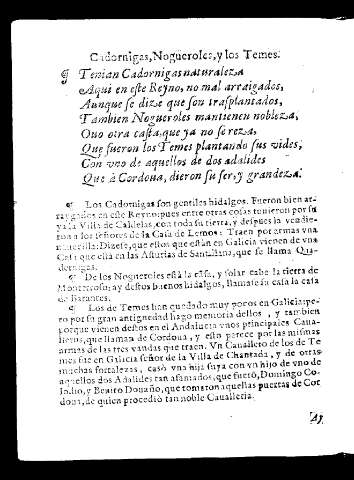 Cadornigas, Nogueroles, y los Temes.
¶ Tenian Cadornigas naturaleza
Aqui en este Reyno, no mal arraigados,
Aunque se dize que son trasplantados,
Tambien Nogueroles mantienen nobleza,
Ouo otra casta, que ya no se reza,
Que fueron los Temes plantando sus vides,
Con vno de aquellos de dos adalides
Que à Cordoua, dieron su ser, y grandeza.
¶ Los Cadornigas son gentiles hidalgos. Fueron bien ar-
raygados en este Reyno: pues entre otras cosas tuuieron por su
ya la Villa de Caldelas, con toda su tierra, y despues la vendie-
ron a los señores de la Casa de Lemos: Traen por armas vna
Dizese, que estos que estàn en Galicia vienen de vna
que està en las Asturias de Santillana, que se llama Qua-
dernigas.
¶ De los Nogueroles està la casa, y solar cabe la tierra de
Monterroso: ay destos buenos hidalgos, llamase su casa la casa
de Barantes.
¶ Los de Temes han quedado muy pocos en Galicia: pe-
ro por su gran antiguedad hago memoria dellos, y tambien
porque vienen destos en el Andaluzia vnos principales Caua-
lleros, que llaman de Cordoua, y esto parece por las mismas
armas de las tres vandas que traen. Vn Cauallero de los de Te
mes fue en Galicia señor de la Villa de Chantada, y de otras
muchas fortalezas, casò vna hija suya con vn hijo de vno de
aquellos dos Adalides tan afamados, que fuerõ, Domingo Co-
lodio, y Benito Douaño, que tomaron aquellas puertas de Cor
doua, de quien procediò tan noble Caualleria.